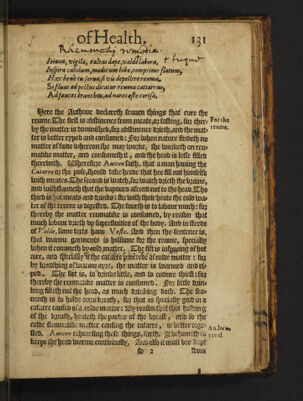 of Health. 131
Ieiuna, vigila, caleas dape, valde labora,
Inspira calidum, modicum bibe, comprime flatum,
Hæc bene tu serua, si vis depellere reuma,
Si fluat ad pectus dicatur reuma catarrus,
Ad fauces branchus, ad nares esto coriza.
Here the Authour declareth seauen things that cure the
reume. The first is abstinence from meats, or fasting, for ther-
by the matter is diminished, for abstinence drieth, and the mat-
ter is better ryped and consumed: For when nature findeth no
matter of foode whereon she may worke, she worketh on reu-
matike matter, and consumeth it, and the head is lesse filled
therewith. Wherefore Auicen saith, that a man hauing the
Catarre or the pose, should take heede that hee fill not himselfe
with meates. The second is to watch, for watch drieth the braine,
and withstandeth that the vapours ascend not to the head. The
third is hot meats and drinks: for with their heate the cold mat-
ter of the reume is digested. The fourth is to labour much: for
thereby the matter reumatike is consumed, by reason that
much labour drieth vp superfluities of the body. And in steede
of Valde, some texts haue Veste. And then the sentence is,
that warme garments is holsome for the reume, specially
when it commeth by cold matter. The fift is inspyring of hot
ayre, and specially if the catarre proceede of colde matter: for
by breathing of warme ayre, the matter is warmed and ri-
ped. The sixt is, to drinke little, and to endure thirst: for
thereby the reumatike matter is consumed. For little drin-
king filleth not the head, as much drinking doth. The sea-
uenth is to hold ones breath, for that is specially good in a
catarre caused of a colde matter: By reason that this holding
of the breath, heateth the parts of the breast, and so the
colde fleumatike matter causing the catarre, is better dige-
sted. Auicen rehearsing these things, saith, It behoueth to
keepe the head warme continually. And also it must bee kept
S 2 from
For the
reume.